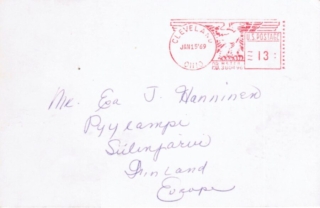 CLEVELAND
JAN 15 '69
OHIO
U.S. POSTAGE
13
Mr. Ea J. Hanninen
Pyylampi
Siilinjarvi
Finland
Europe